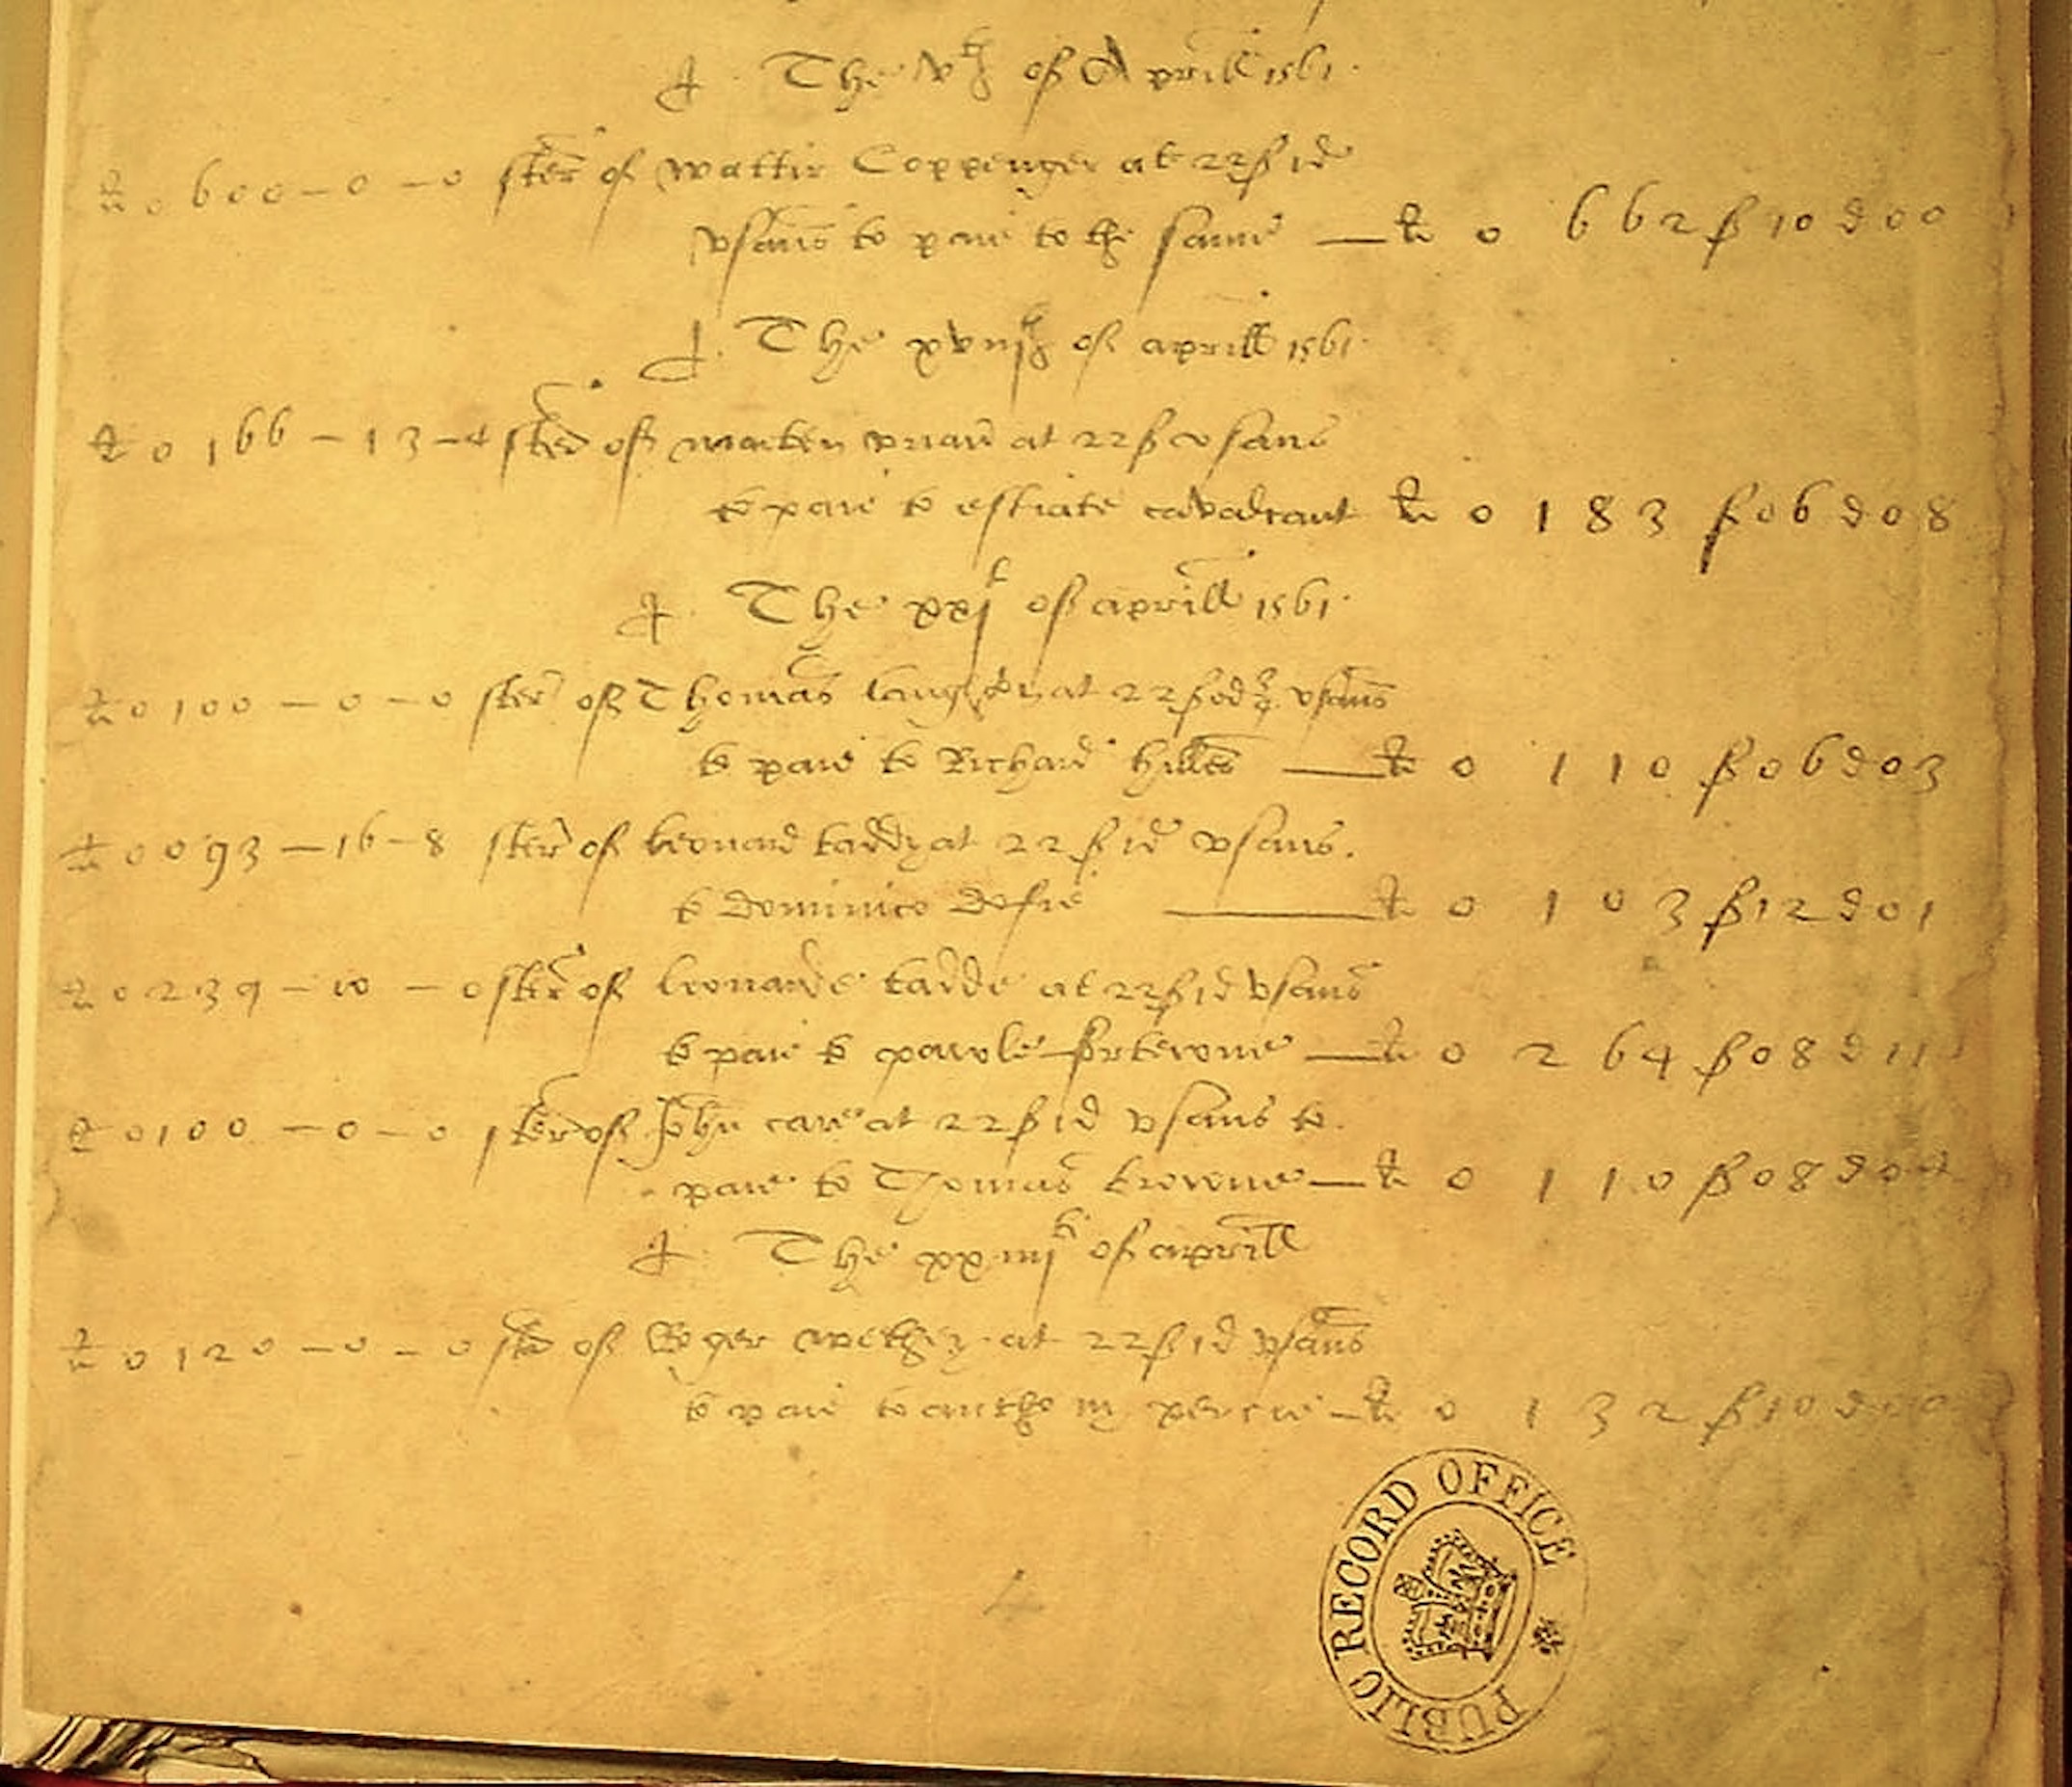 The vth of Aprill 1561
li 0600 - 0 - 0 ster of wattir Coppenger at 22ß 1d
vsans to paie to the same — li 0 662 ß 10 d 00
The xviijth of aprill 1561
li 0166 - 13 - 4 ster of marten at 22ß vsans
to paie to estiate cavalcant li 0 183 ß 06 d 08
The xxjt of aprill 1561
li 0100 - 0 - 0 ster of Thomas langton at 22ß 0d 3/4 vsans
to paie to Richard hilles — li 0 110 ß 06 d 03
li 0093 - 16 - 8 ster of leonard taddy at 22ß 1d vsans
to dominico — li 0 103 ß 12 d 01
li 0239 - 10 - 0 ster of leonarde tadde at 22ß 1d vsans
to paie to pavole — li 0 264 ß 08 d 11
li 0100 - 0 - 0 ster of John care at 22ß 1d vsans to
paie to Thomas browne — li 0 110 ß 08 d 04
The xxiiijth of aprill
li 0120 - 0 - 0 ster of Roger at 22ß 1d vsans
to paie to anthony percie — li 0 132 ß 10 d 00
PUBLIC RECORD OFFICE